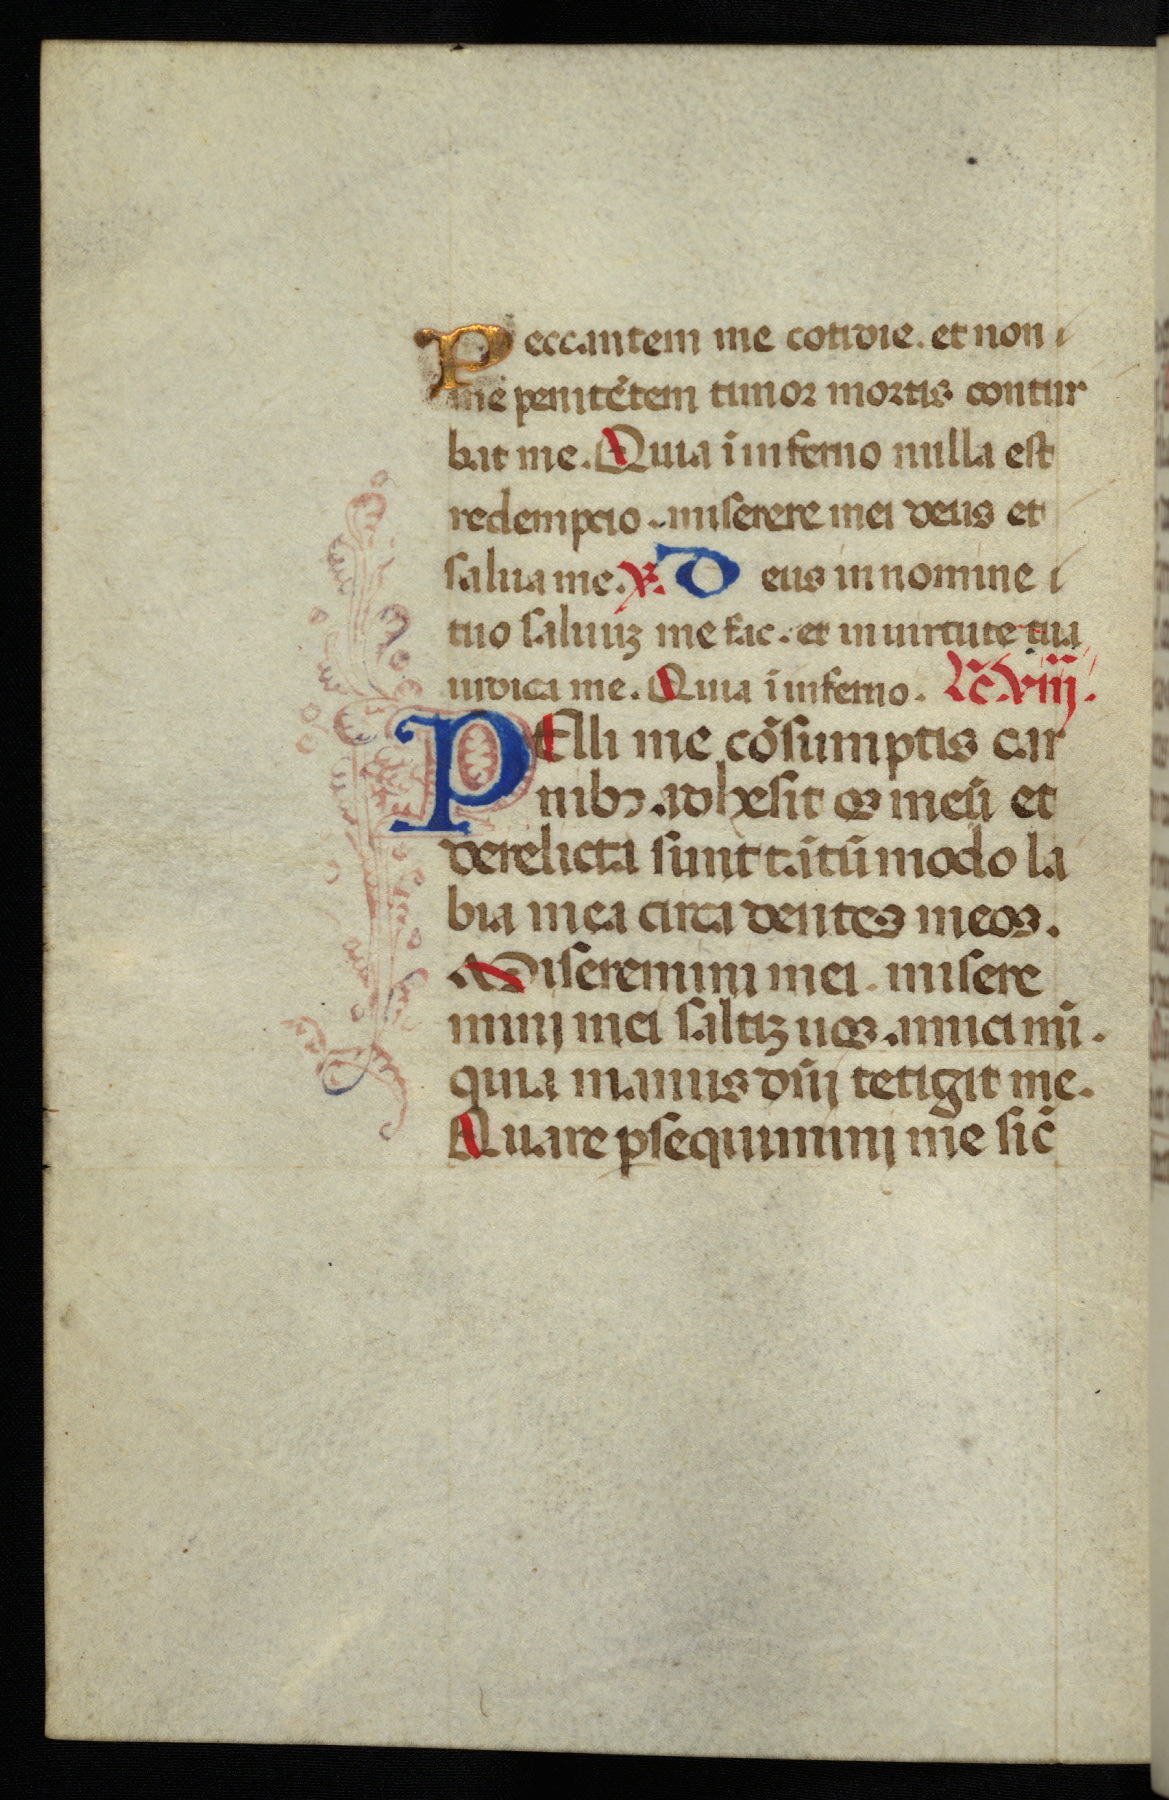 Peccantem me cotidie. et non
me penitētem timor mortis contur
bat me. Quia i inferno nulla est
redempcio. miserere mei deus et
salua me. ℣. Deus in nomine
tuo saluuȝ me fac. et in uirtute tua
iudica me. Quia i inferno. Lc̄ Viii.
PElli me cōsumptis car
nibꝫ. adhesit os meū et
derelicta sunt tātū modo la
bia mea circa dentes meos.
Miseremini mei. misere
minj mei saltiȝ uos. amici mī.
quia manus dn̄j tetigit me.
Quare ꝑsequiminj me sic̄